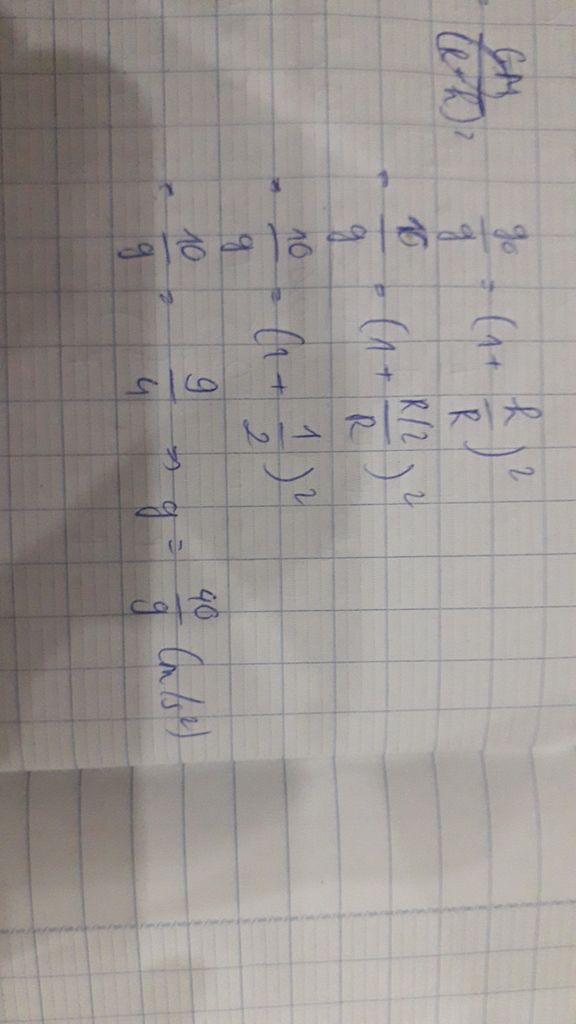 GM/(R+h)²
g₀/g = (1 + h/R)²
= 10/g = (1 + R/2/R)²
= 10/g = (1 + 1/2)²
= 10/g = 9/4 => g = 40/9 (m/s²)